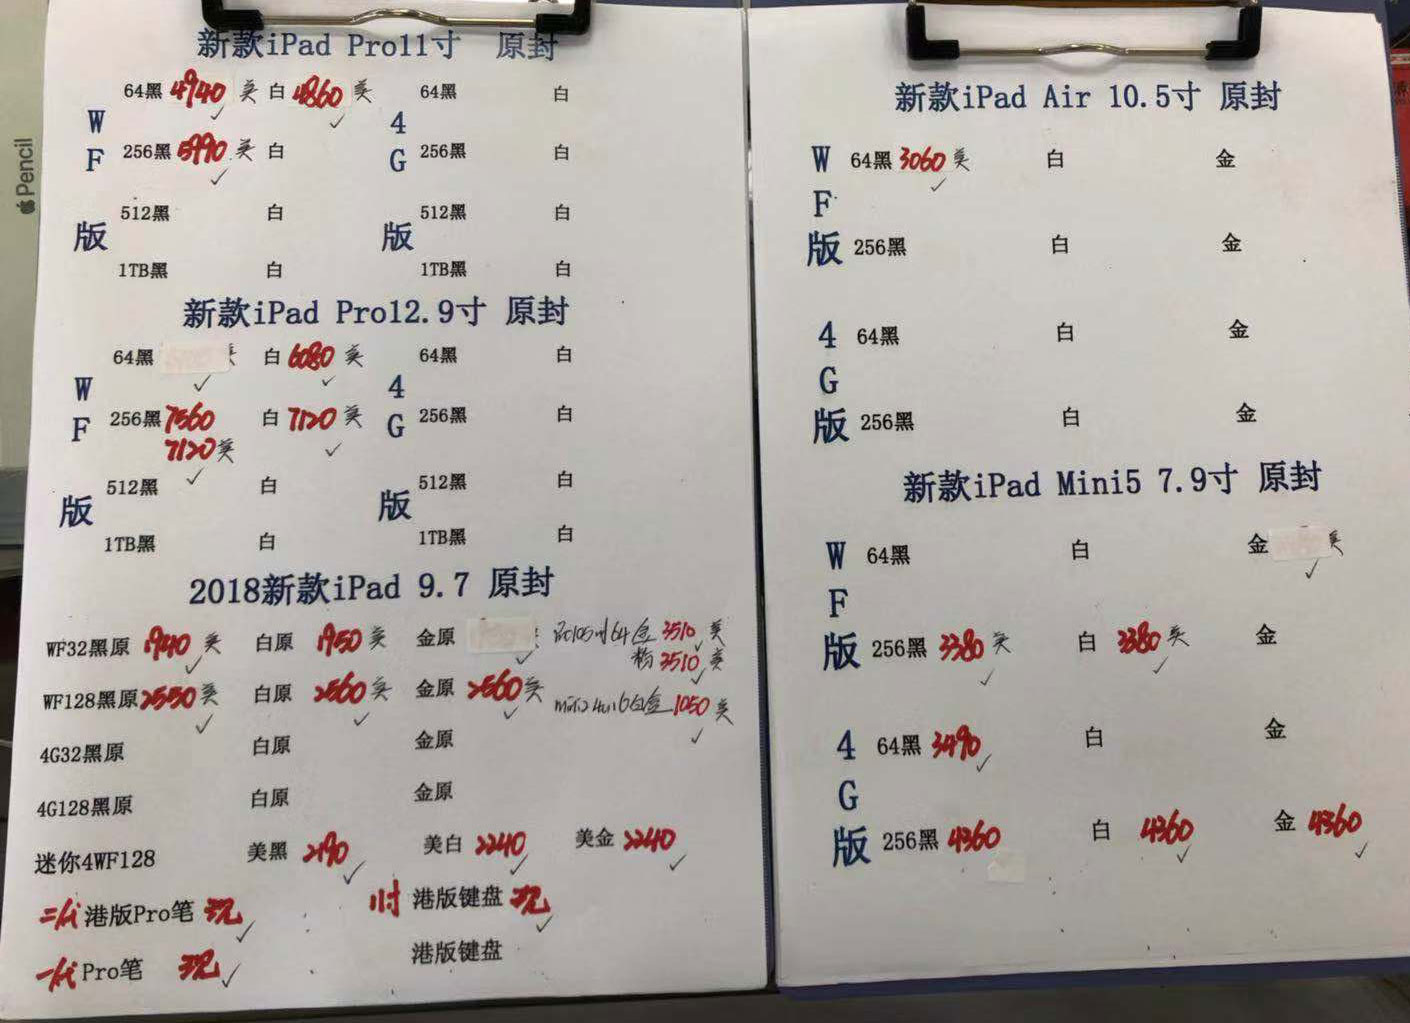 新款iPad Pro11寸 原封
64黑 4940 美 白 4860 美 64黑 白
WF版 4G版
256黑 5990 美 白 256黑 白
512黑 白 512黑 白
1TB黑 白 1TB黑 白
新款iPad Pro12.9寸 原封
64黑 美 白 6080 美 64黑 白
WF版 4G版
256黑 7560 白 7120 美 256黑 白
7120 美
512黑 白 512黑 白
1TB黑 白 1TB黑 白
2018新款iPad 9.7 原封
WF32黑原 1940 美 白原 1950 美 金原 64金 3510 美
粉 3510 美
WF128黑原 2550 美 白原 2560 美 金原 2560 美
1050 美
4G32黑原 白原 金原
4G128黑原 白原 金原
迷你4WF128 美黑 2190 美白 2240 美金 2240
二代 港版Pro笔 现 11寸 港版键盘 现
一代 Pro笔 现 港版键盘
Pencil
新款iPad Air 10.5寸 原封
WF版
64黑 3060 美 白 金
256黑 白 金
4G版
64黑 白 金
256黑 白 金
新款iPad Mini5 7.9寸 原封
WF版
64黑 白 金 美
256黑 3380 美 白 3380 美 金
4G版
64黑 3490 白 金
256黑 4360 白 4360 金 4360